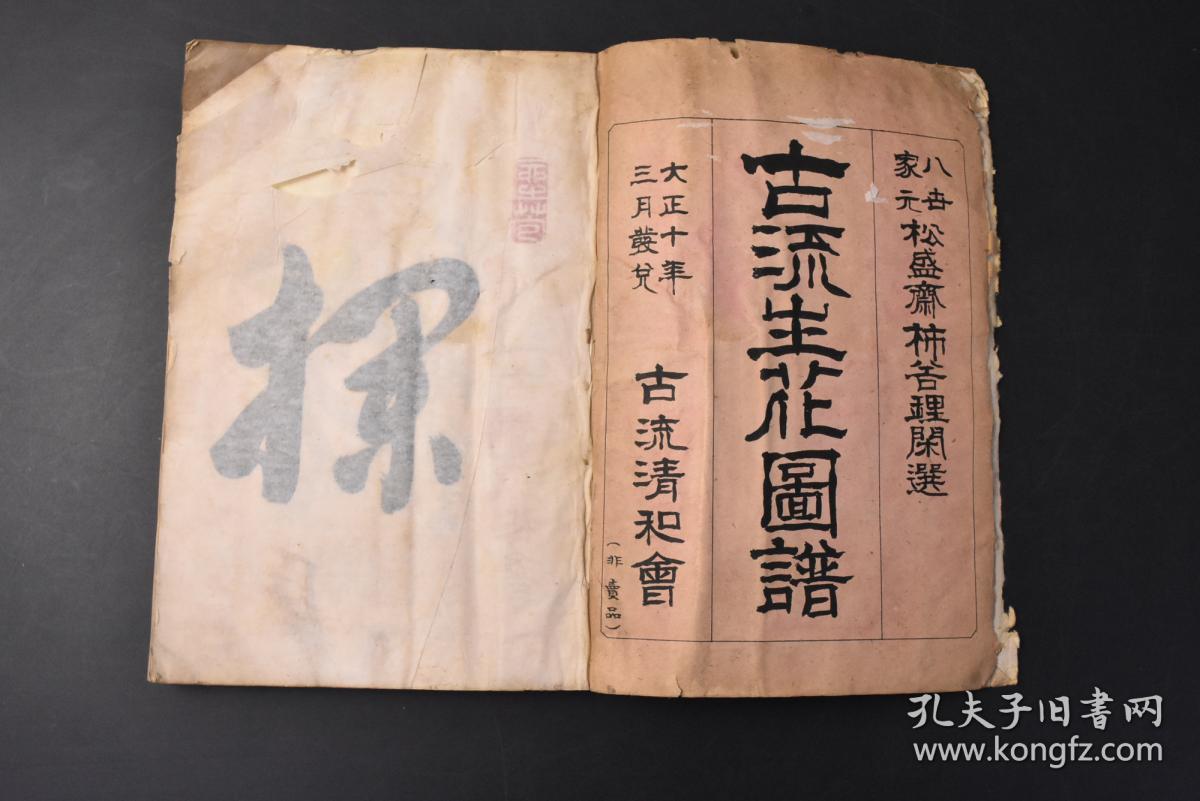 八世
家元
松盛齋柿谷理閑選
古流生花圖譜
大正十年
三月發兌
古流清和會
（非賣品）
孔夫子旧书网
www.kongfz.com